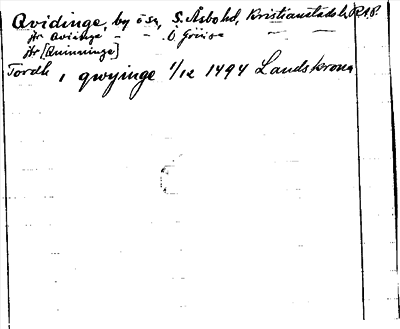 Qvidinge, by ö sn, S. Åsbo hd, Kristianstads l. RAP.
Jfr Qvinge - - Ö Grävie - -
Jfr [Quinninge]
Tordh i qwyinge 1/12 1494 Landskrona